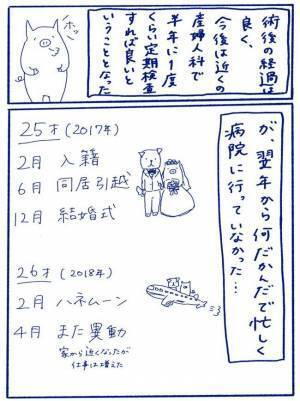 術後の経過は
良く、
今後は近くの
産婦人科で
半年に1度
くらい定期検査
すれば良いと
いうこととなった
ホッ
が、翌年から何だかんだで忙しく
病院に行っていなかった…
25才(2017年)
2月 入籍
6月 同居引越
12月 結婚式
26才(2018年)
2月 ハネムーン
4月 また異動
家から近くなったが
仕事は増えた